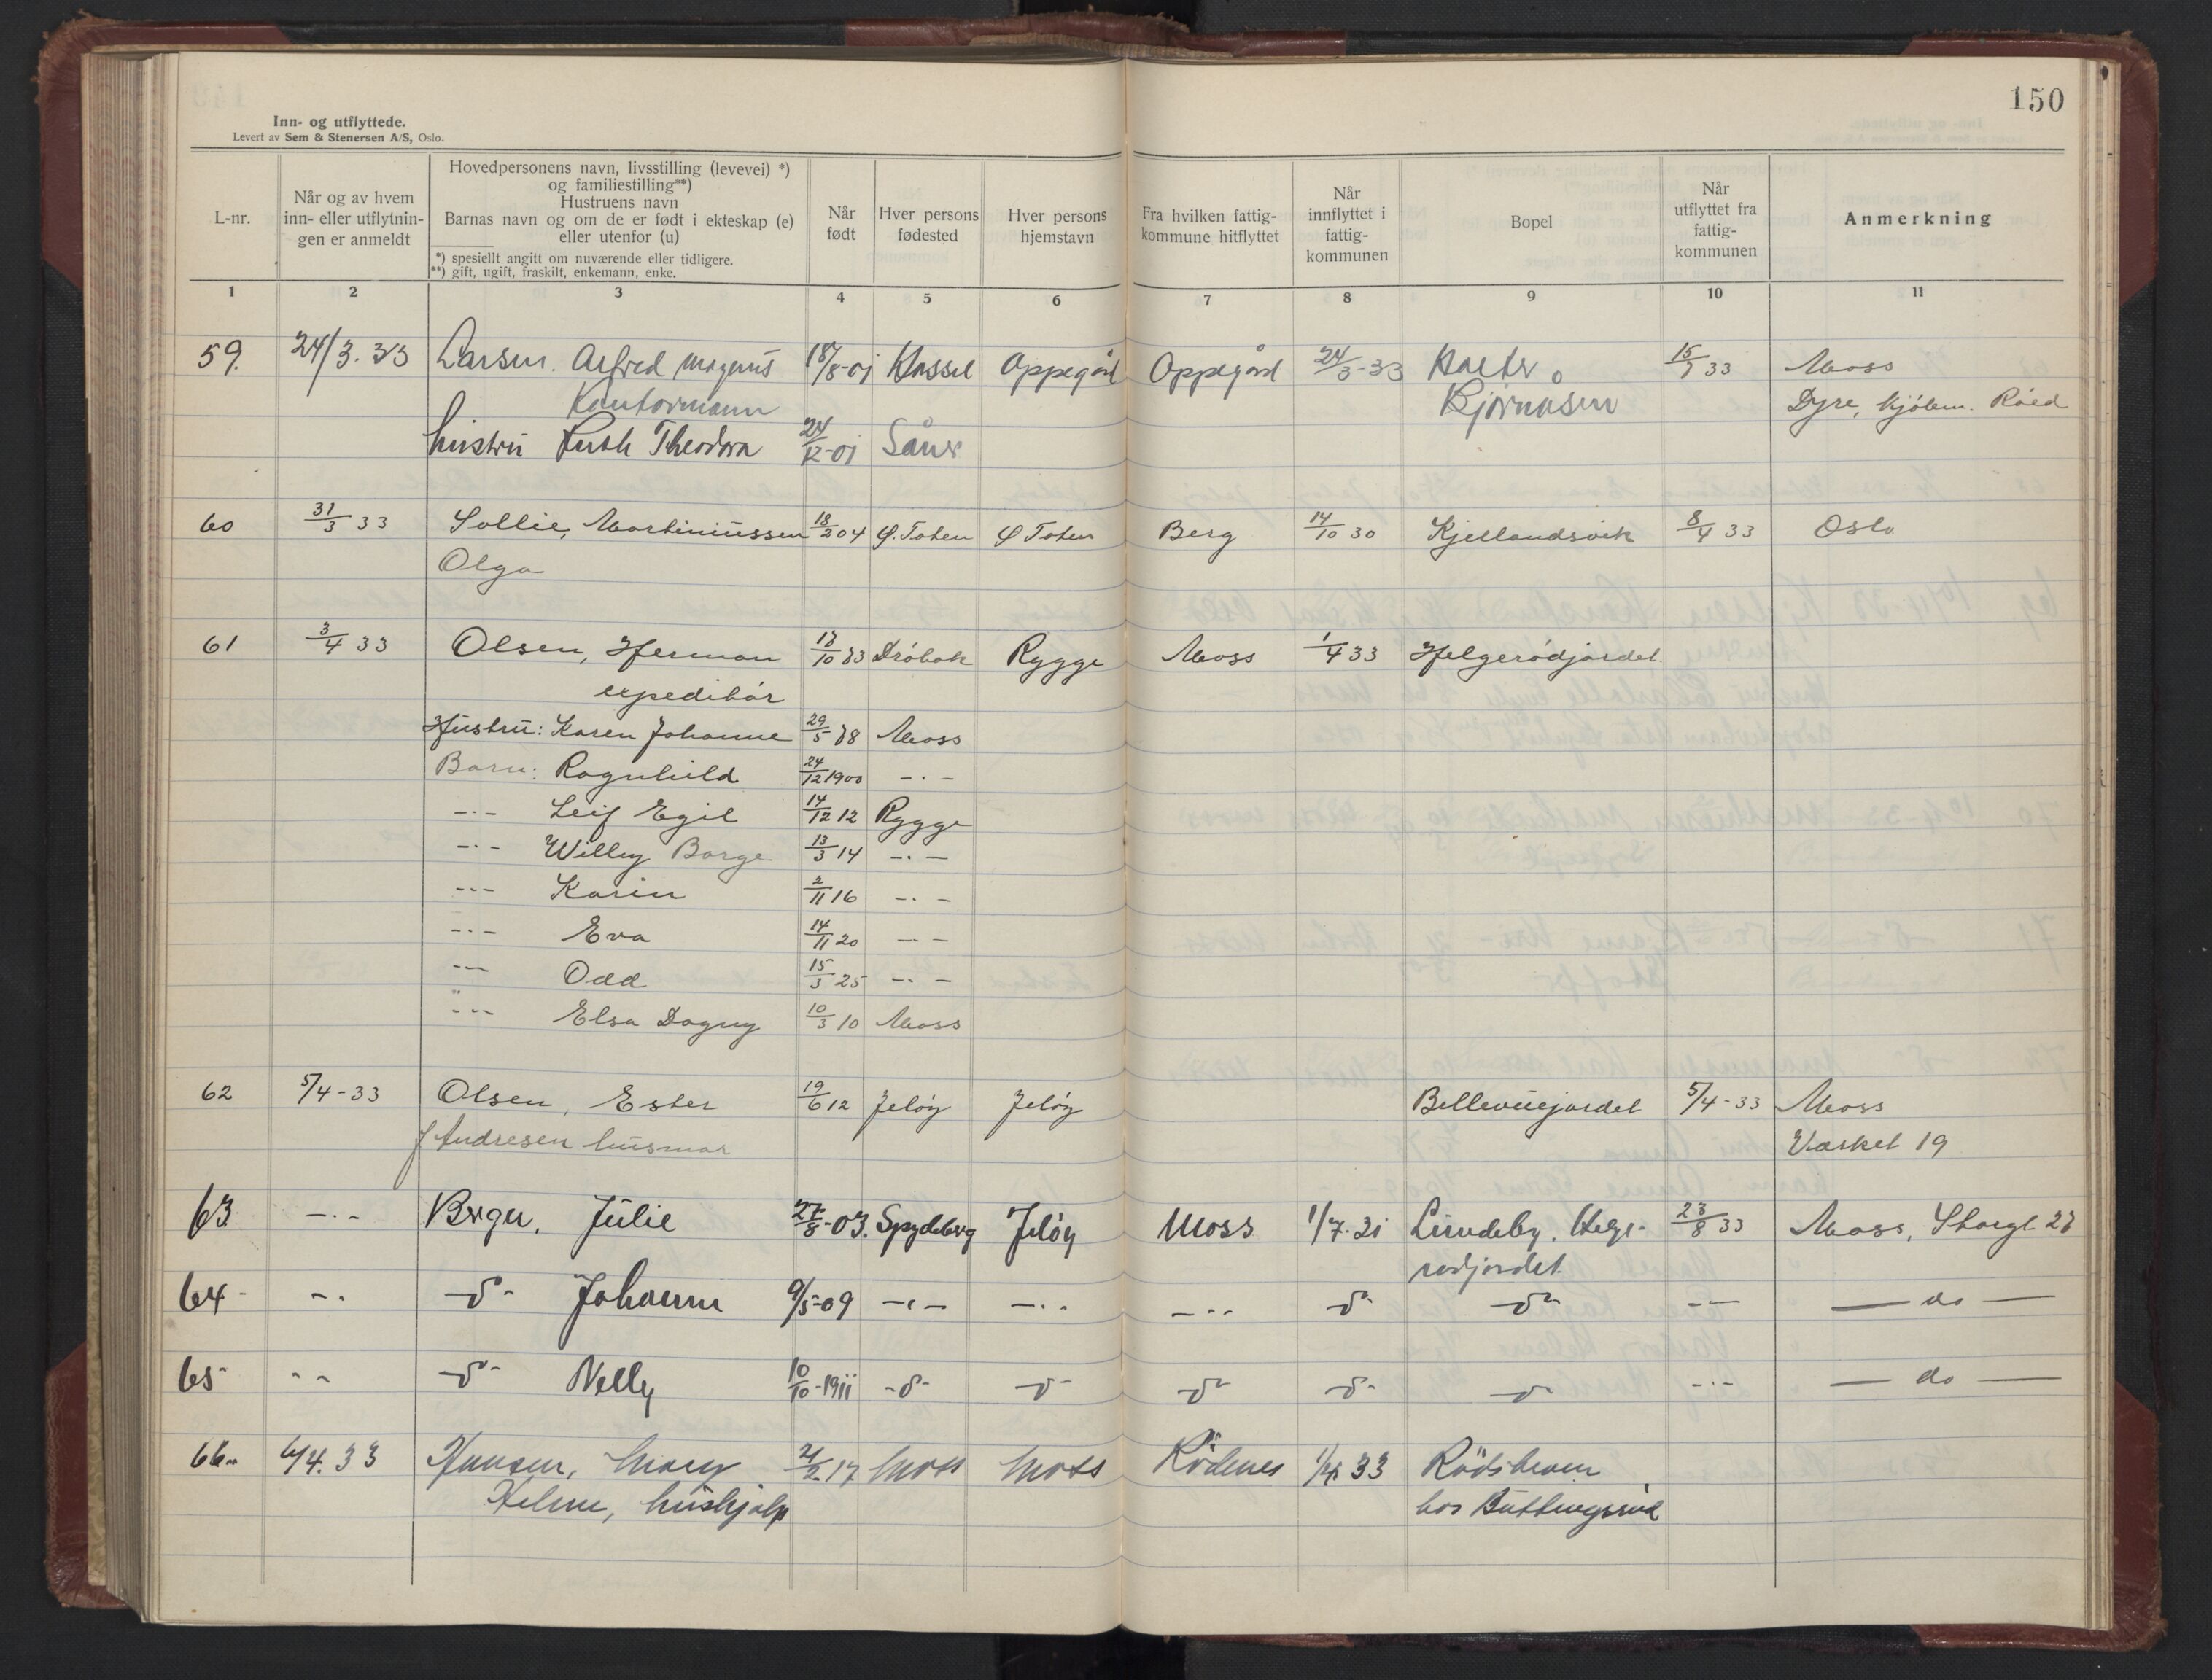 150
Inn- og utflyttede.
Levert av Sem & Stenersen A/S, Oslo.
L-nr.
Når og av hvem inn- eller utflytnin- gen er anmeldt
Hovedpersonens navn, livsstilling (levevei) *)
og familiestilling**)
Hustruens navn
Barnas navn og om de er født i ekteskap (e)
eller utenfor (u)
*) spesiellt angitt om nuværende eller tidligere.
**) gift, ugift, fraskilt, enkemann, enke.
Når født
Hver persons fødested
Hver persons hjemstavn
Fra hvilken fattig- kommune hitflyttet
Når innflyttet i fattig- kommunen
Bopel
Når utflyttet fra fattig- kommunen
Anmerkning
1 2 3 4 5 6 7 8 9 10 11
59. 24/3. 33 Larsen. Alfred Magnus 18/8-01 Oppegård Oppegård 24/3-33 15/7 33 Moss
Kontormann Bjørnåsen Dyre, Kjølem. Råed
hustru Ruth Theodora 24/12-01 Såner
60 31/3 33 Sollie, Martiniussen 18/2 04 Ø. Toten Ø Toten Berg 14/10 30 Kjellandsvik 8/4 33 Oslo
Olga
61 3/4 33 Olsen, Herman 17/10 83 Drøbak Rygge Moss 1/4 33 Helgerødjordet
expeditør
Hustru: Karen Johanne 29/5 88 Moss
Barn: Ragnhild 24/12 1900 -.-
-.- Leif Egil 14/12 12 Rygge
-.- Willy Borge 13/3 14 -.-
-.- Karin 2/11 16 -.-
-.- Eva 14/11 20 -.-
-.- Odd 15/3 25 -.-
-.- Elsa Dagny 10/3 10 Moss
62 5/4-33 Olsen, Ester 19/6 12 Jeløy Jeløy Bellevuejordet 5/4-33 Moss
f Andresen husmor Værket 19
63 -.- Berger, Julie 27/8-03. Spydeberg Jeløy Moss 1/7-31 Lundeby. Helge- 23/8 33 Moss, Storgt. 23
rødjordet
64 -.- -d- Johanne 9/5-09 -.- -.- -.- -d- -d- -.- — do —
65 -.- -d- Nelly 10/10-1911 -d- -d- -d- -d- -d- -.- — do —
66 6/4. 33 Hansen, Mary 2/2-17 Moss Moss Rødenes 1/4 33 Rödsheim
Helene, hushjelp hos Buttingsrud